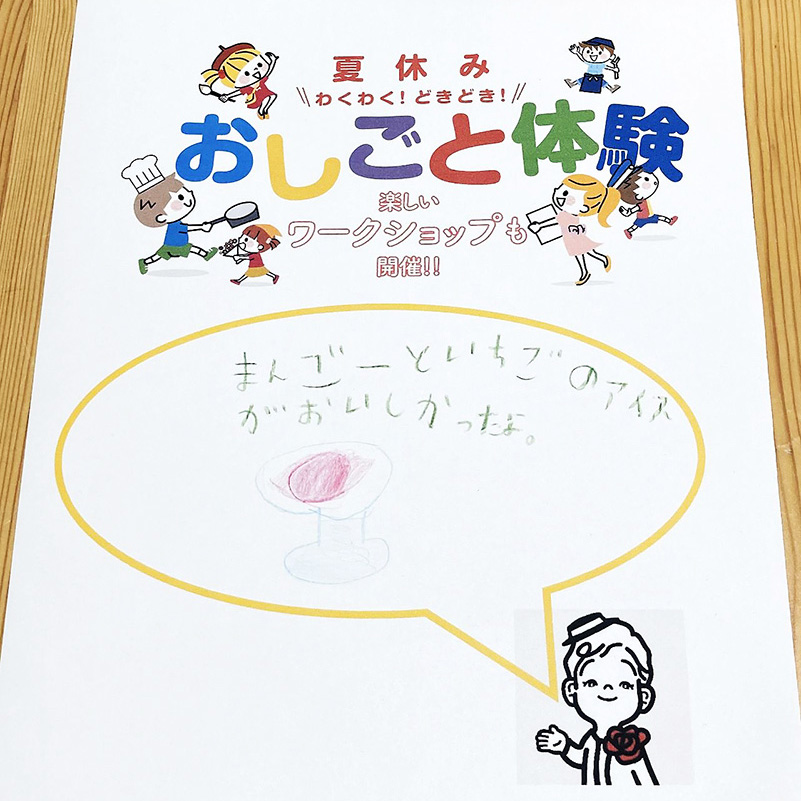 夏休み
わくわく!どきどき!
おしごと体験
楽しい
ワークショップも
開催!!
まんごーといちごのアイス
がおいしかったよ。